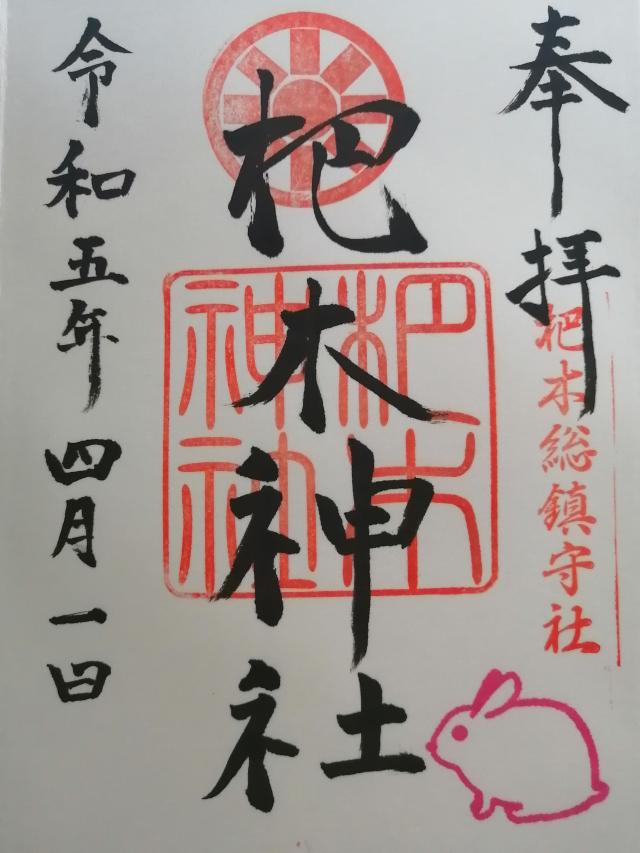 奉拝
杷木総鎮守社
杷木神社
杷木
神社
令和五年四月一日